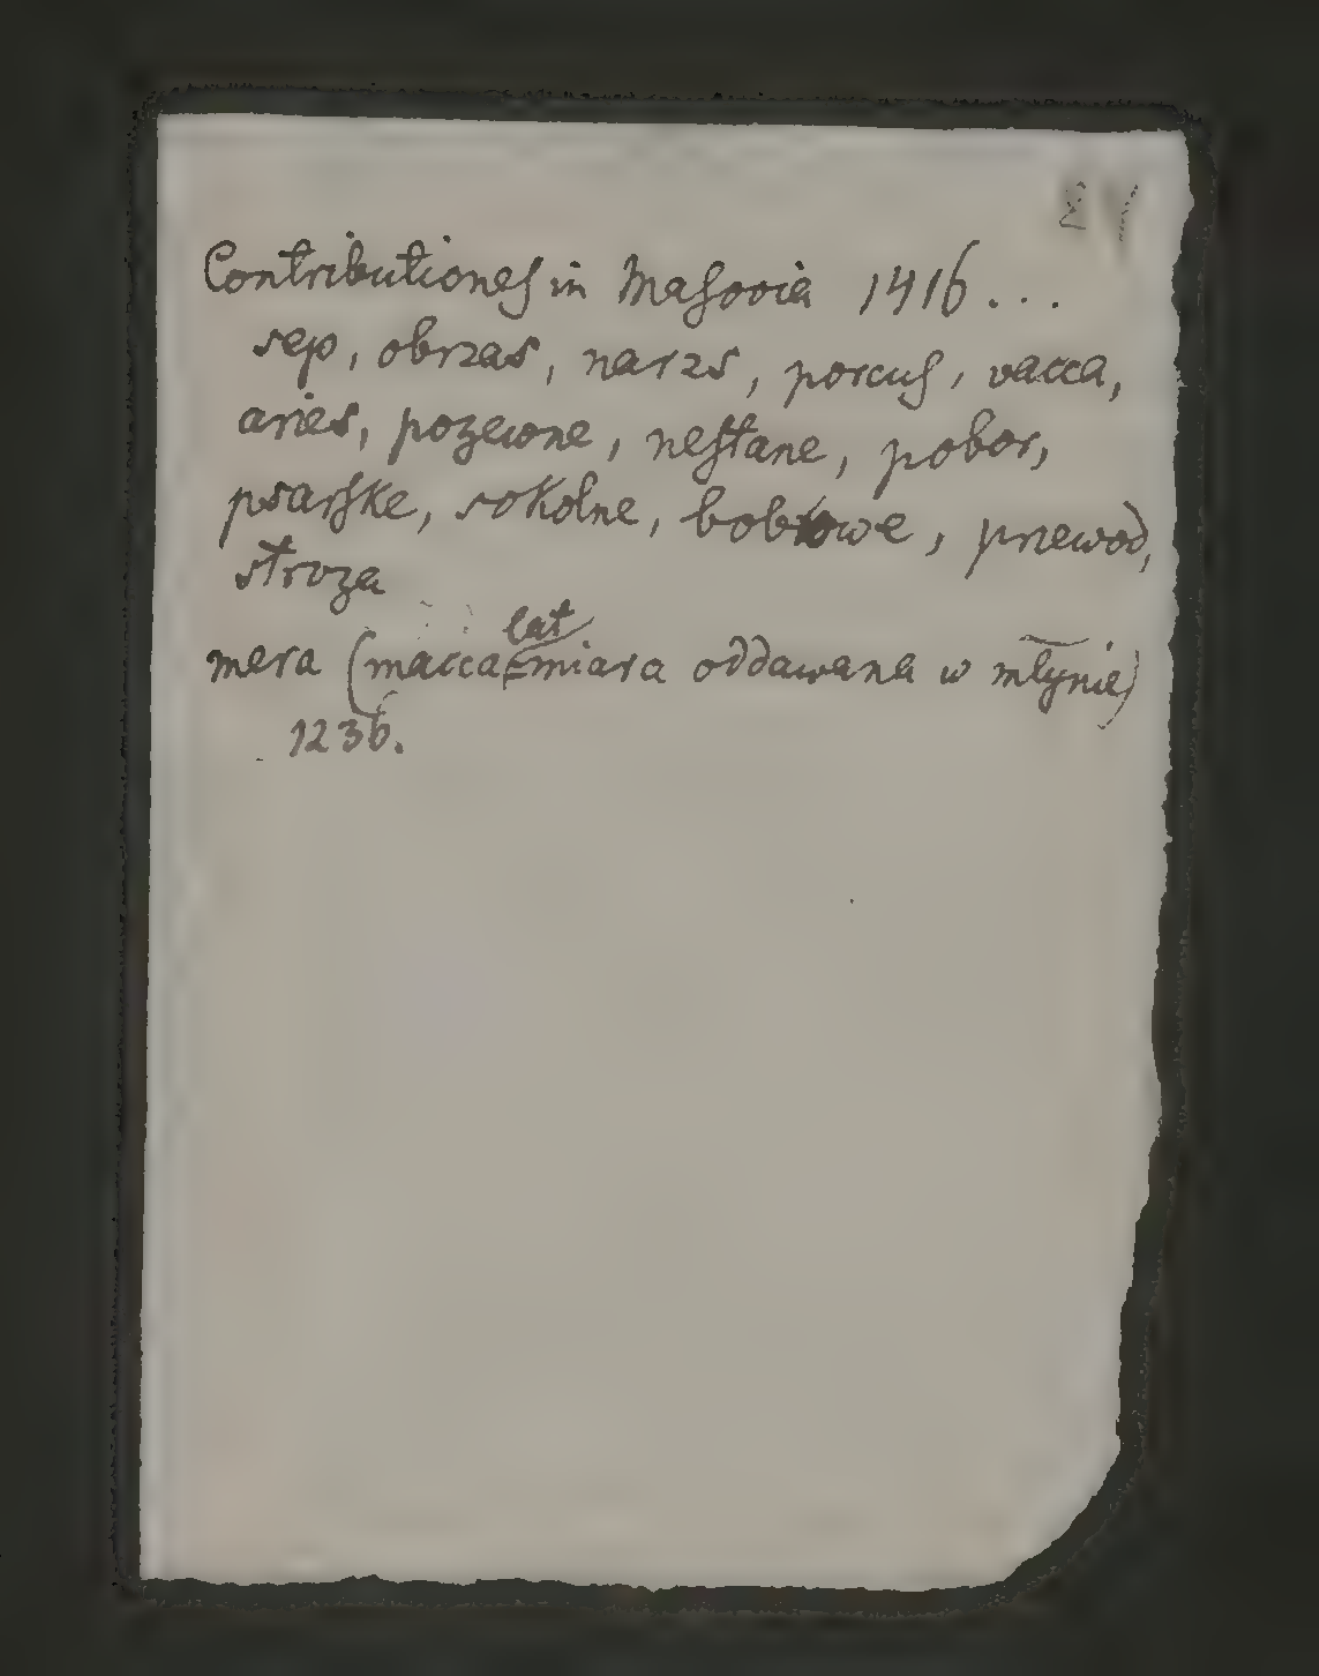 24
Contributiones in Masovia 1416...
sep, obrzas, narzs, porcus, vacca,
aries, pozewne, nestane, pobor,
psarske, sokolne, bobrowe, przewod,
stroza
lat
mera (macca = miara oddawana w młynie)
1236.